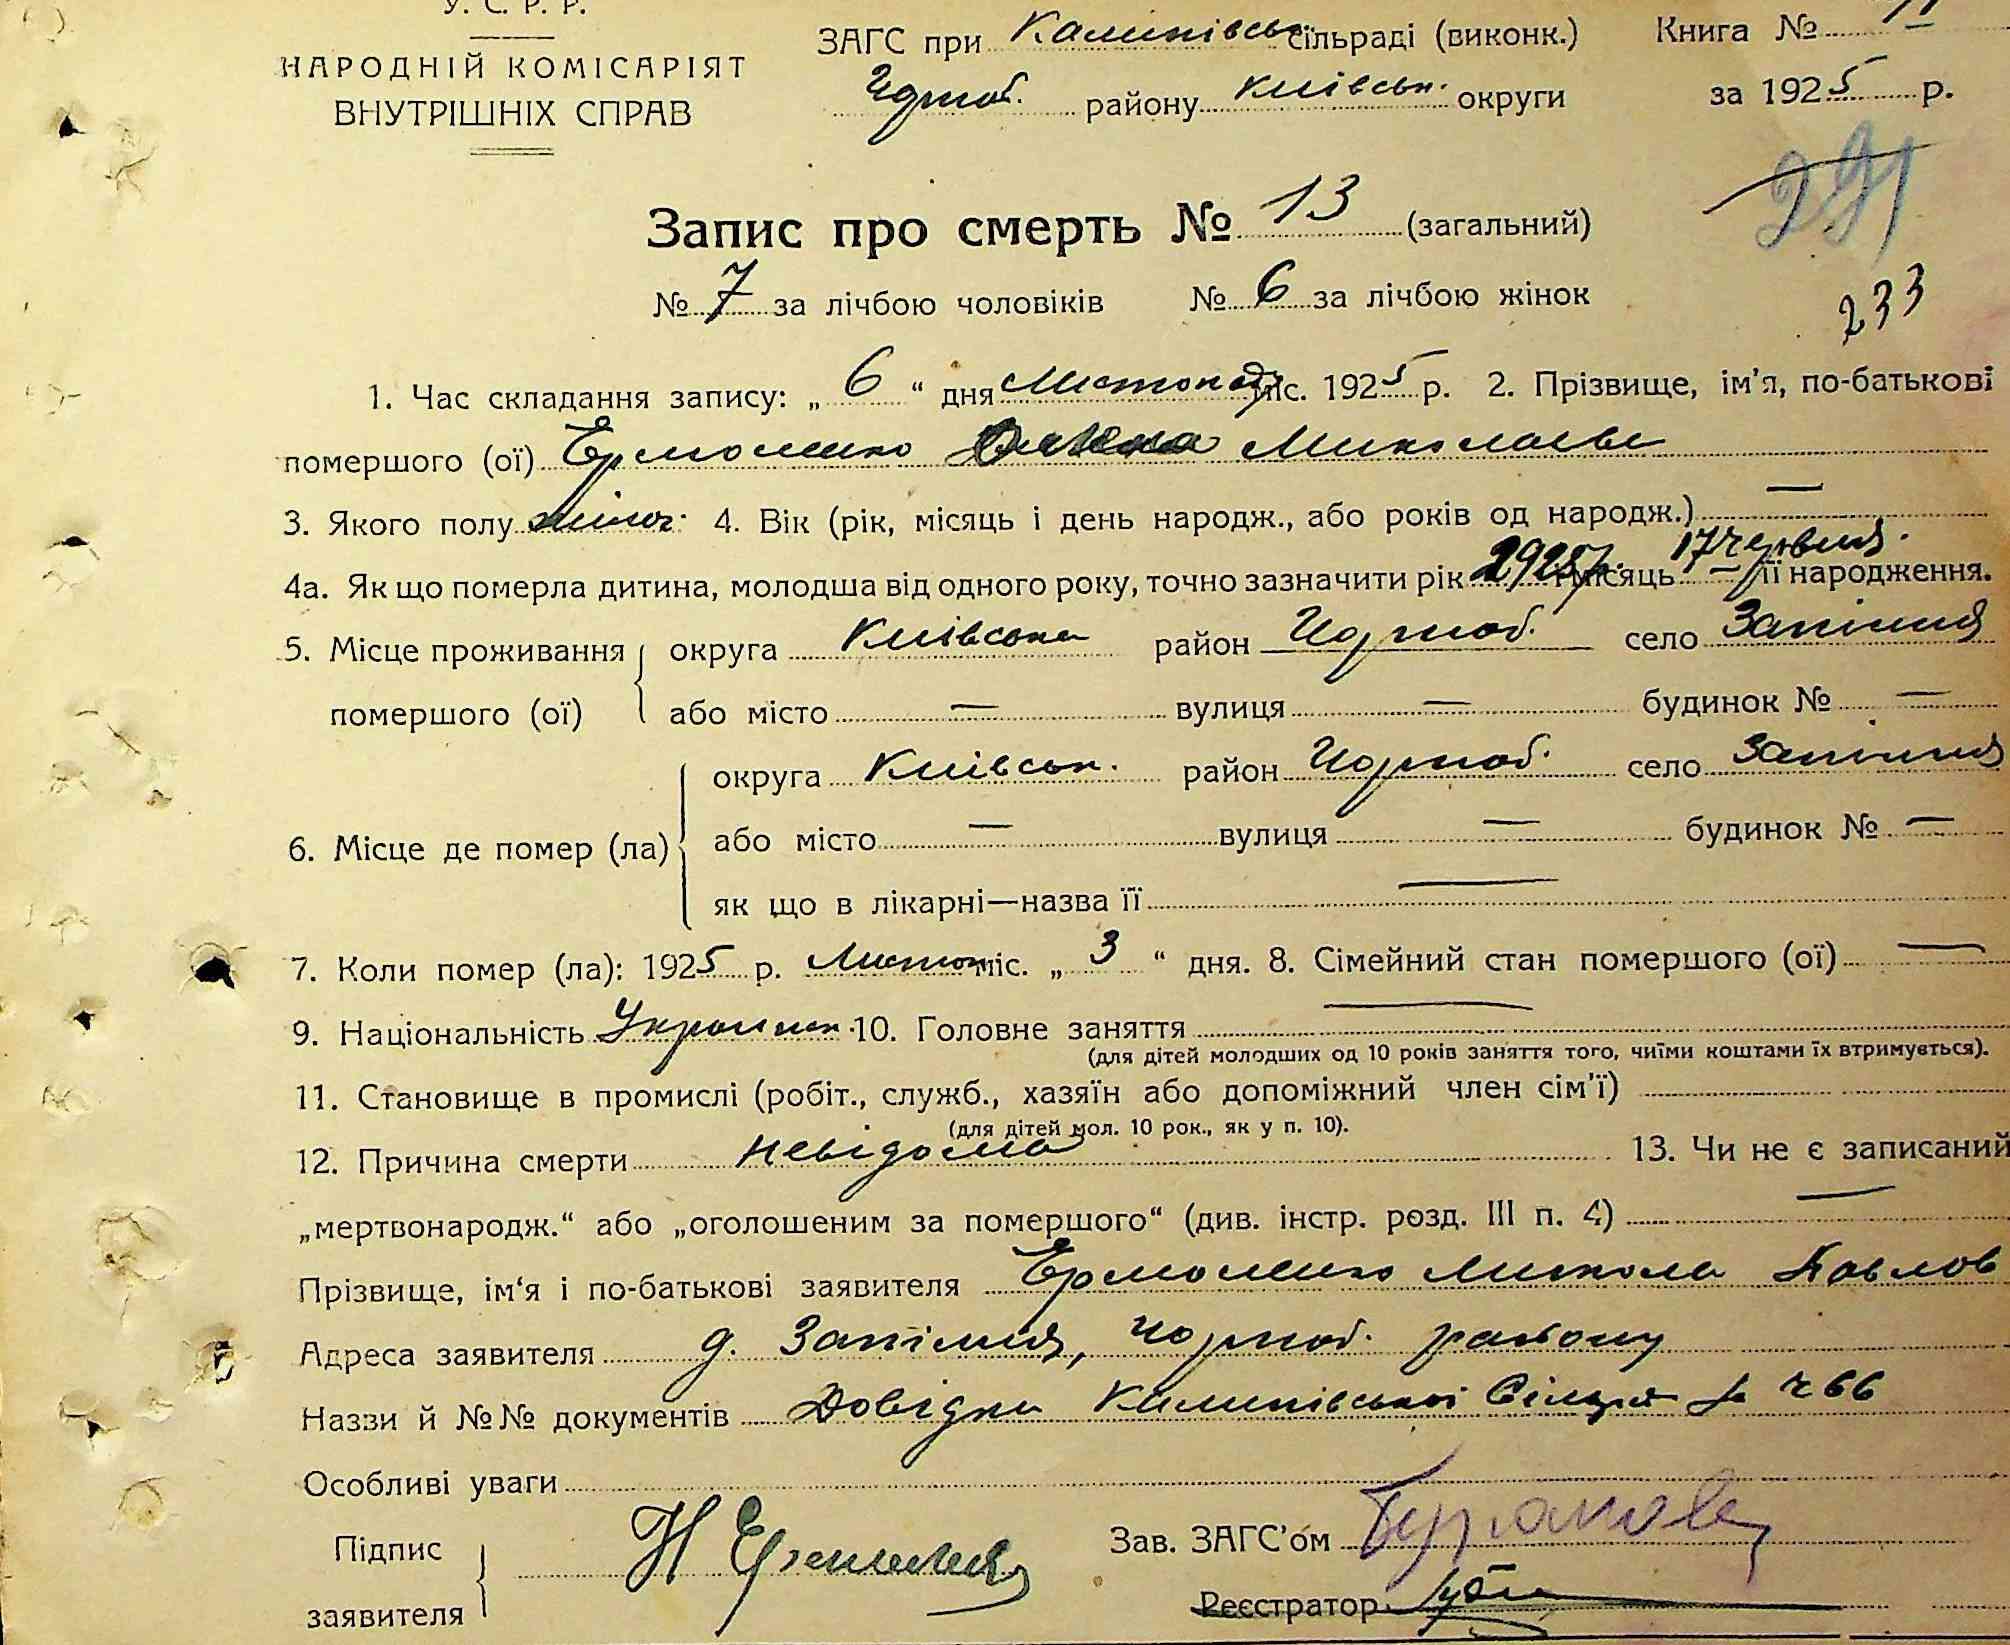 У. С. Р. Р.
НАРОДНІЙ КОМІСАРІЯТ
ВНУТРІШНІХ СПРАВ
ЗАГС при Калинівськ сільраді (виконк.) Книга №
Чорноб. району Київськ. округи за 1925 р.
291
Запис про смерть № 13 (загальний)
№ 7 за лічбою чоловіків № 6 за лічбою жінок
233
1. Час складання запису: „ 6 “ дня Листопад міс. 1925 р. 2. Прізвище, ім'я, по-батькові
помершого (ої) Ермоленко Миколаєва
3. Якого полу жіноч. 4. Вік (рік, місяць і день народж., або років од народж.) —
4а. Як що померла дитина, молодша від одного року, точно зазначити рік 1925р. місяць 17 червня. її народження.
5. Місце проживання помершого (ої) округа Київська район Чорноб. село Запілля
або місто — вулиця — будинок № —
6. Місце де помер (ла) округа Київськ. район Чорноб. село Запілля
або місто — вулиця — будинок № —
як що в лікарні—назва її —
7. Коли помер (ла): 1925 р. Листоп міс. „ 3 “ дня. 8. Сімейний стан помершого (ої) —
9. Національність Україн. 10. Головне заняття —
(для дітей молодших од 10 років заняття того, чиїми коштами їх втримується).
11. Становище в промислі (робіт., служб., хазяїн або допоміжний член сім'ї)
(для дітей мол. 10 рок., як у п. 10).
12. Причина смерти невідома 13. Чи не є записаний
„мертвонародж.“ або „оголошеним за помершого“ (див. інстр. розд. III п. 4) —
Прізвище, ім'я і по-батькові заявителя Ермоленко Микола Павлов
Адреса заявителя д. Запілля, Чорноб. району
Назви й №№ документів Довідка Калинівської Сільради № 466
Особливі уваги
Підпис заявителя Н Ермоленко
Зав. ЗАГС'ом
Реєстратор